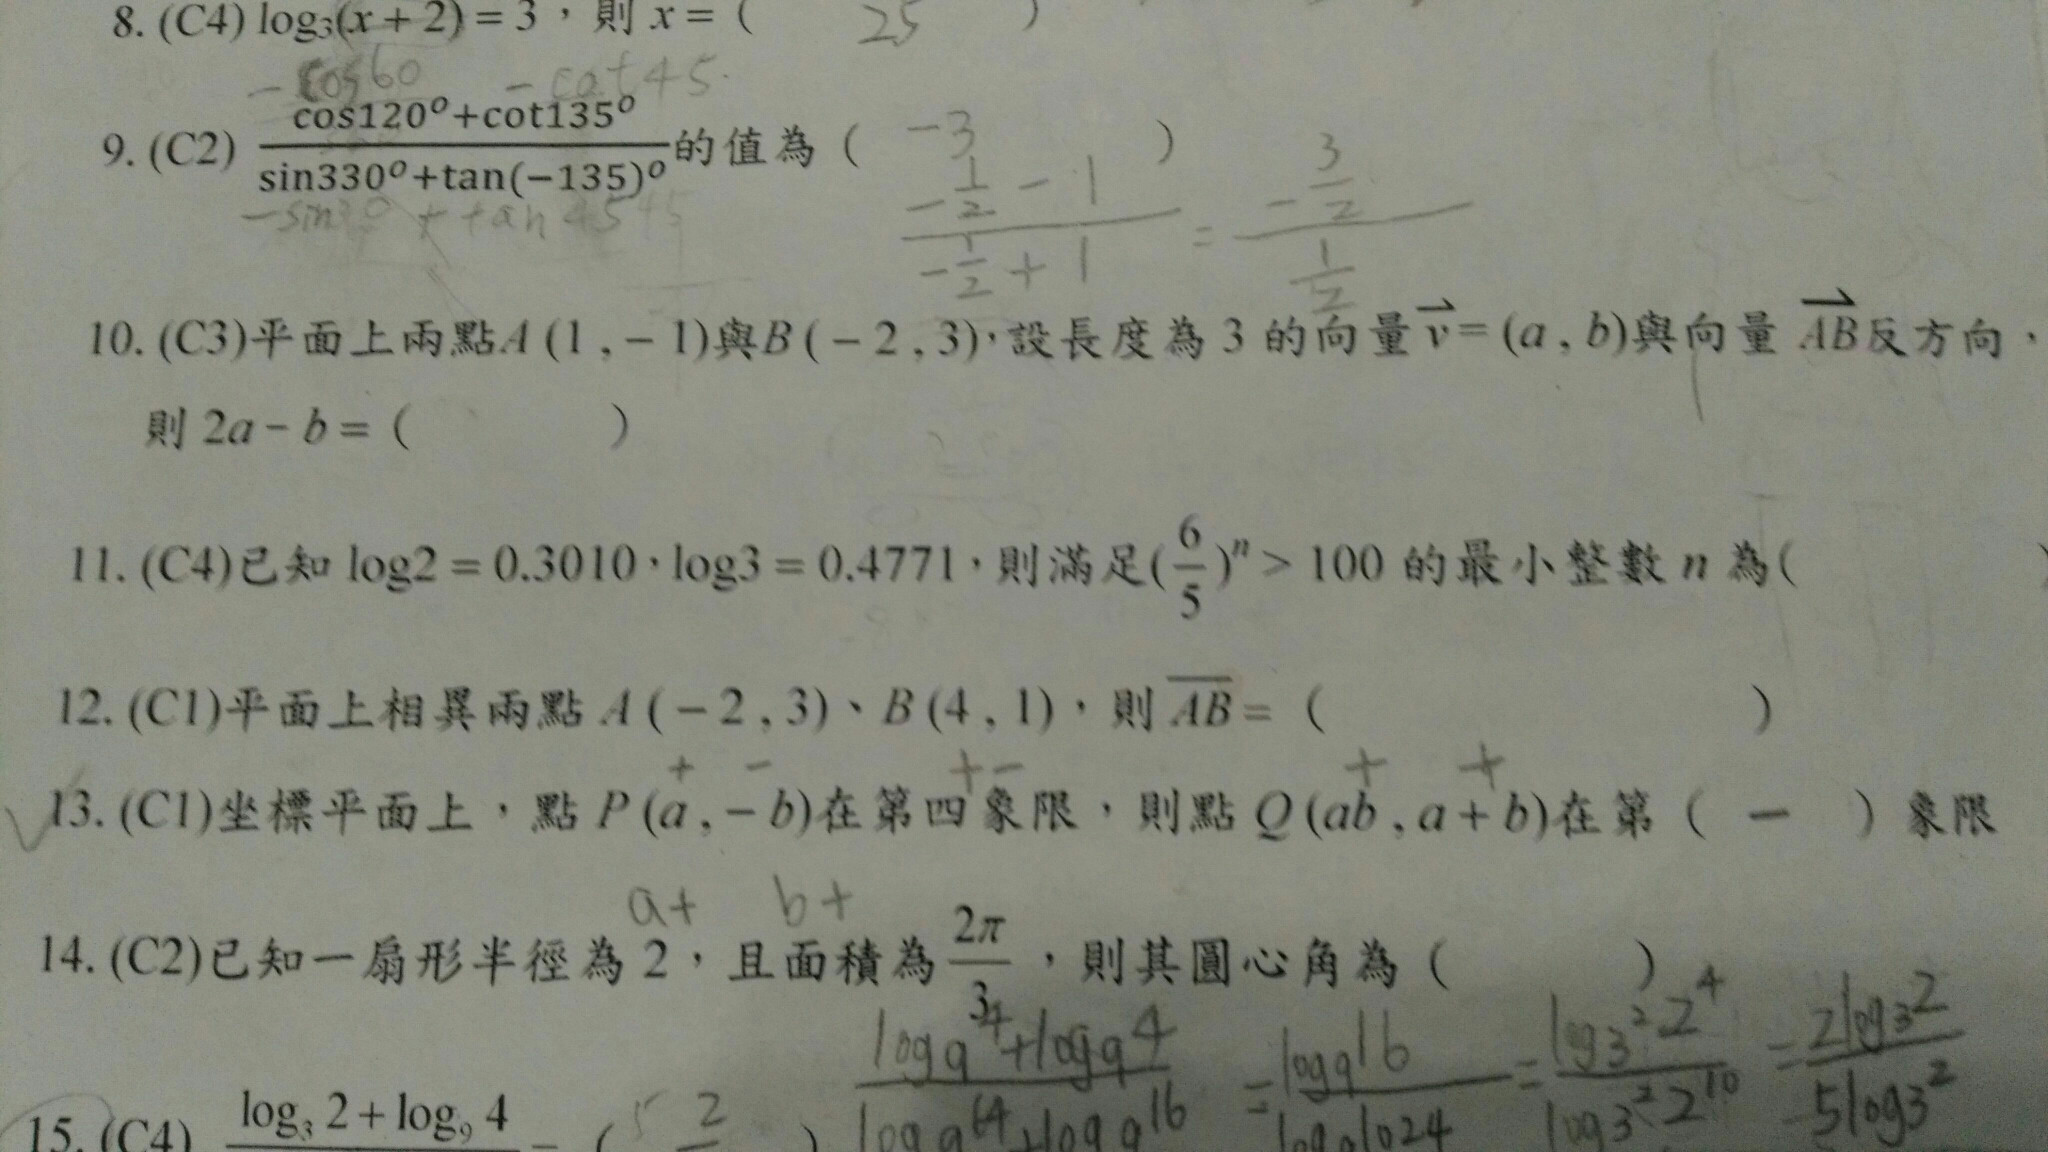 8. (C4) log₃(x + 2) = 3，則 x = ( 25 )
-cos60 -cot45
9. (C2) cos120°+cot135° / sin330°+tan(−135)° 的值為 ( -3 )
-sin30 + tan45
-1/2 - 1 / -1/2 + 1 = -3/2 / 1/2
10. (C3)平面上兩點A (1 , − 1)與B ( − 2 , 3)，設長度為 3 的向量 v = (a , b)與向量 AB反方向，
則 2a − b = ( )
11. (C4)已知 log2 = 0.3010，log3 = 0.4771，則滿足(6/5)ⁿ > 100 的最小整數 n 為( )
12. (C1)平面上相異兩點 A ( − 2 , 3)、B (4 , 1)，則 AB = ( )
+ - + - + +
13. (C1)坐標平面上，點 P (a , − b)在第四象限，則點 Q (ab , a + b)在第 ( 一 ) 象限
a+ b+
14. (C2)已知一扇形半徑為 2，且面積為 2π/3，則其圓心角為 ( )
log₉4+log₉4 / log₉64+log₉16 = log₉16 / log₉1024 = log3²2⁴ / log3²2¹⁰ = 2log3² / 5log3²
15. (C4) log₃ 2 + log₉ 4 = ( 2 )